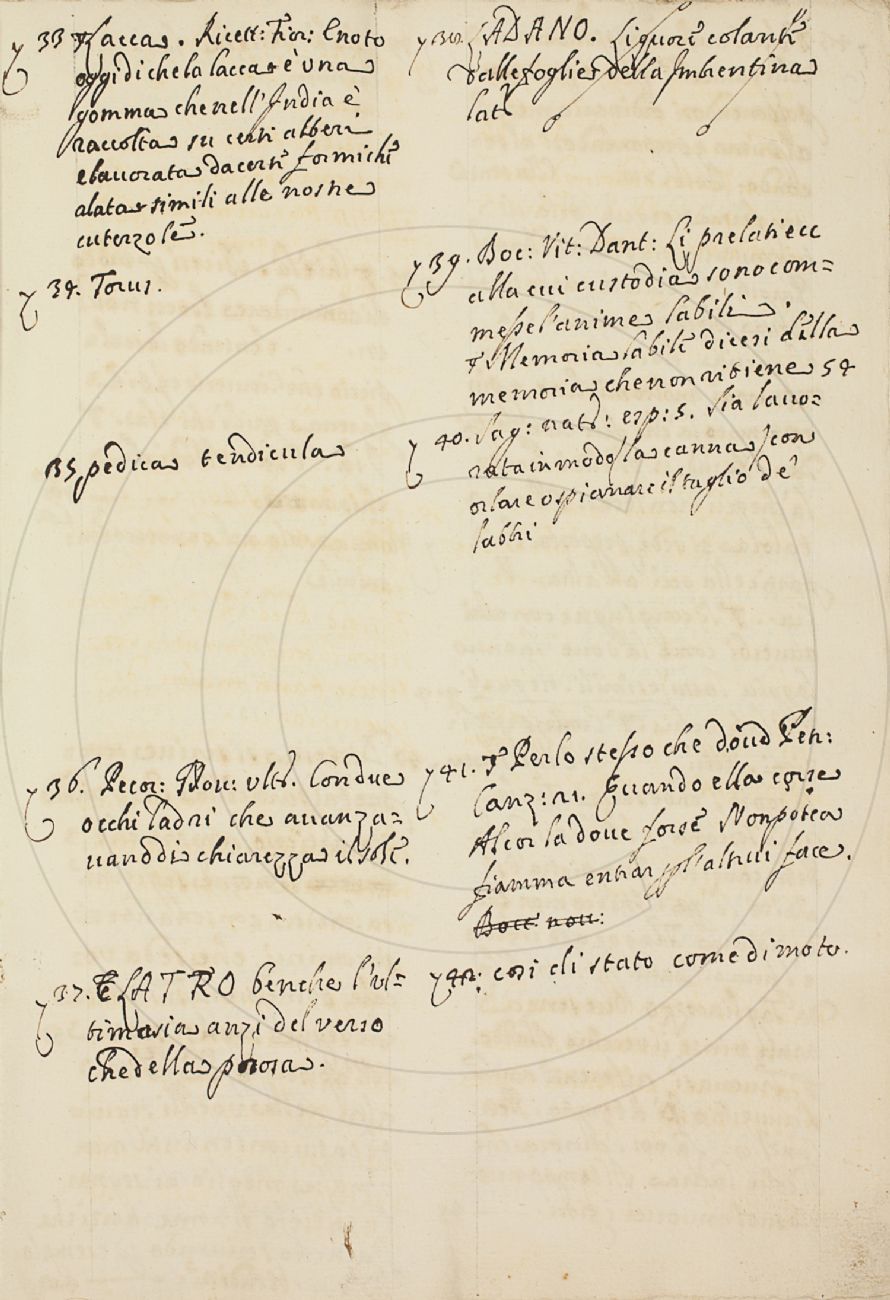 33 Lacca. Ricett: Fior: E noto
oggidi che la lacca è una
gomma che nell'India è
raccolta su certi alberi
e lavorata da certe formiche
alate simili alle nostre
cuterzole.
34. Torus.
35 pedica tendicula
36. Pecor: Nov: ult. Con due
occhi ladri che avanza=
vano di chiarezza il sole.
37. LATRO benche l'ul=
tima sia anzi del verso
che della prosa.
38. LADANO. Liquore colante
dalle foglie della Imbrentina
lat.
39. Boc: Vit: Dant: Li prelati ecc
alla cui custodia sono com=
messe l'anime labili.
Memoria labile dicesi della
memoria che non ritiene 54
40. Sag: nat: esp: 5. Sia lavo=
rata in modo la canna con
orlare o spianare il taglio de'
labbri
41. Per lo stesso che dove Petr:
Canz: 21. Quando ella corse
Al cor la dove forse Non potea
fiamma entrar per l'altrui face.
Bocc: nov:
42. cosi di stato come di moto.